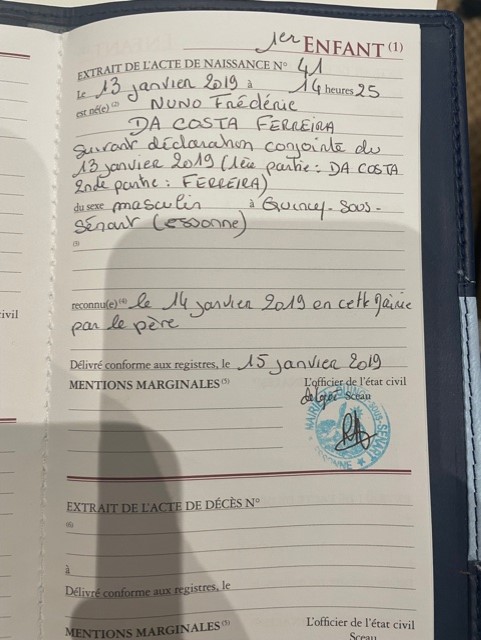 1er ENFANT (1)
EXTRAIT DE L'ACTE DE NAISSANCE N° 41
Le 13 janvier 2019 à 14 heures 25
est né(e) (2) NUNO Frédéric
DA COSTA FERREIRA
suivant déclaration conjointe du
13 janvier 2019 (1ère partie : DA COSTA
2nde partie : FERREIRA)
du sexe masculin à Quincy-sous-
Sénart (essonne)
(3)
reconnu(e) (4) le 14 janvier 2019 en cette Mairie
par le père
Délivré conforme aux registres, le 15 janvier 2019
MENTIONS MARGINALES (5) L'officier de l'état civil
Sceau
EXTRAIT DE L'ACTE DE DÉCÈS N°
(6)
à
Délivré conforme aux registres, le
MENTIONS MARGINALES (5) L'officier de l'état civil
Sceau
ivil
ivil